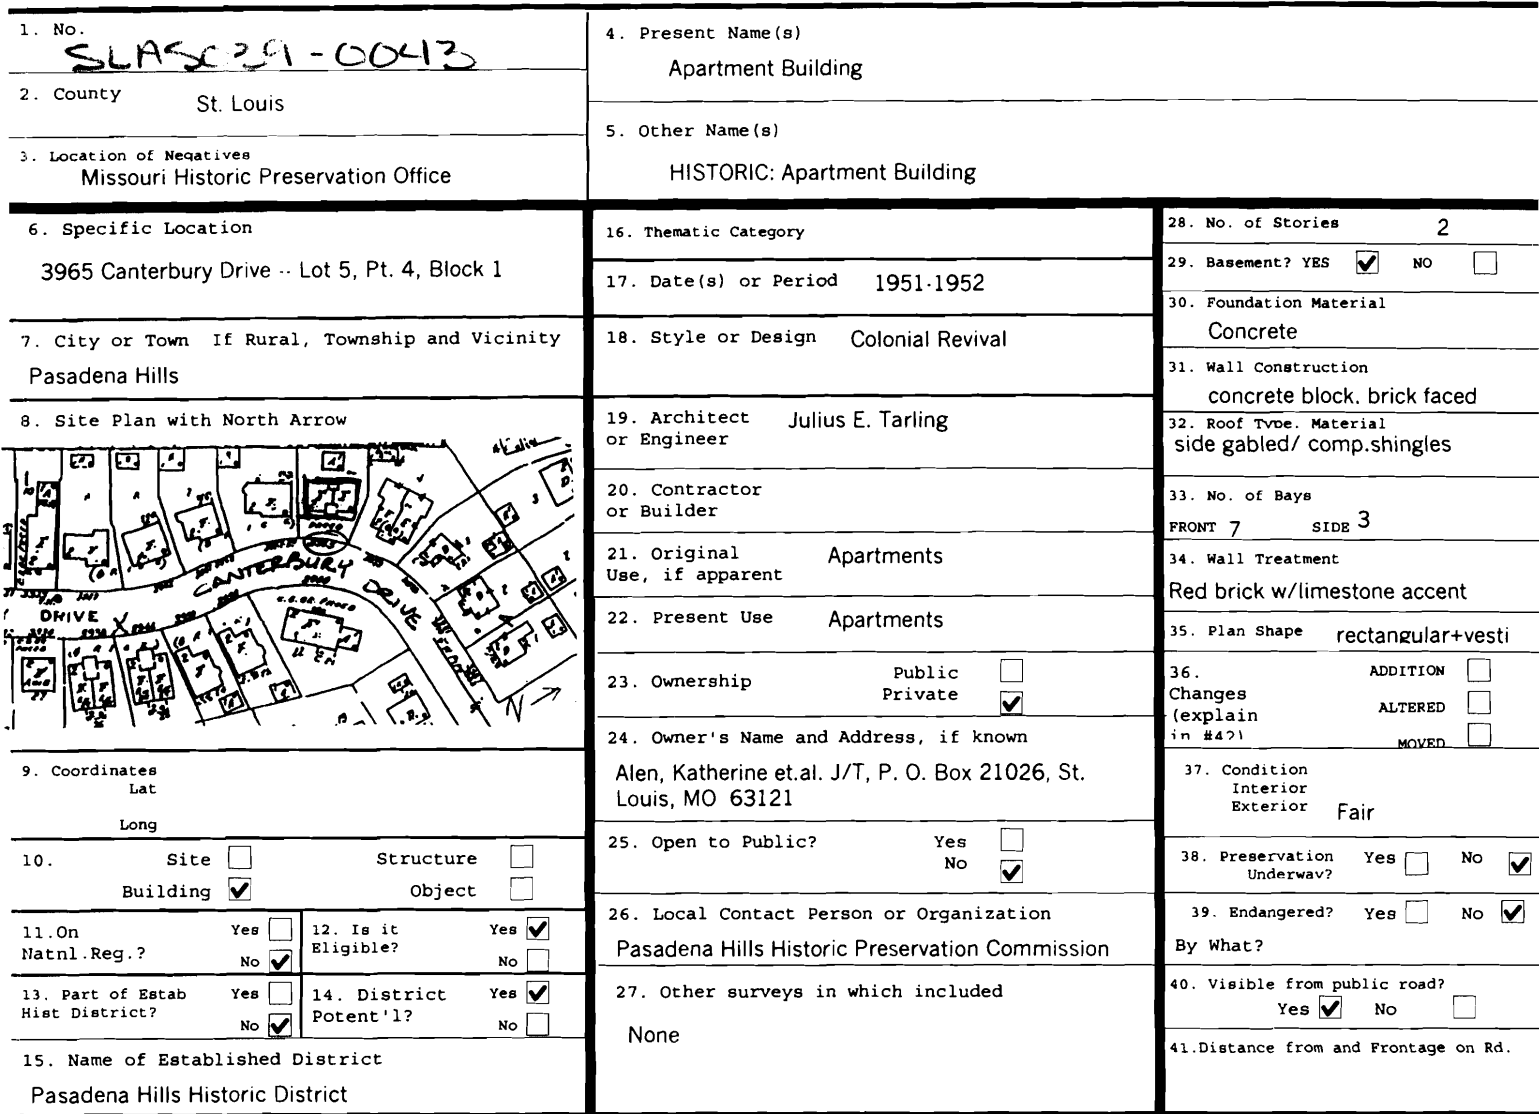 1. No.
SLASC29-0043
2. County St. Louis
3. Location of Negatives
Missouri Historic Preservation Office
4. Present Name(s)
Apartment Building
5. Other Name(s)
HISTORIC: Apartment Building
6. Specific Location
3965 Canterbury Drive -- Lot 5, Pt. 4, Block 1
7. City or Town If Rural, Township and Vicinity
Pasadena Hills
8. Site Plan with North Arrow
CANTERBURY
DRIVE
DRIVE
N
9. Coordinates
Lat
Long
10. Site Structure
Building ✔ Object
11.On Yes
Natnl.Reg.? No ✔
12. Is it Yes ✔
Eligible? No
13. Part of Estab Yes
Hist District? No ✔
14. District Yes ✔
Potent'l? No
15. Name of Established District
Pasadena Hills Historic District
16. Thematic Category
17. Date(s) or Period 1951-1952
18. Style or Design Colonial Revival
19. Architect Julius E. Tarling
or Engineer
20. Contractor
or Builder
21. Original Apartments
Use, if apparent
22. Present Use Apartments
23. Ownership Public
Private ✔
24. Owner's Name and Address, if known
Alen, Katherine et.al. J/T, P. O. Box 21026, St.
Louis, MO 63121
25. Open to Public? Yes
No ✔
26. Local Contact Person or Organization
Pasadena Hills Historic Preservation Commission
27. Other surveys in which included
None
28. No. of Stories 2
29. Basement? YES ✔ NO
30. Foundation Material
Concrete
31. Wall Construction
concrete block. brick faced
32. Roof Type. Material
side gabled/ comp.shingles
33. No. of Bays
FRONT 7 SIDE 3
34. Wall Treatment
Red brick w/limestone accent
35. Plan Shape rectangular+vesti
36. ADDITION
Changes
(explain ALTERED
in #42) MOVED
37. Condition
Interior
Exterior Fair
38. Preservation Yes No ✔
Underway?
39. Endangered? Yes No ✔
By What?
40. Visible from public road?
Yes ✔ No
41.Distance from and Frontage on Rd.